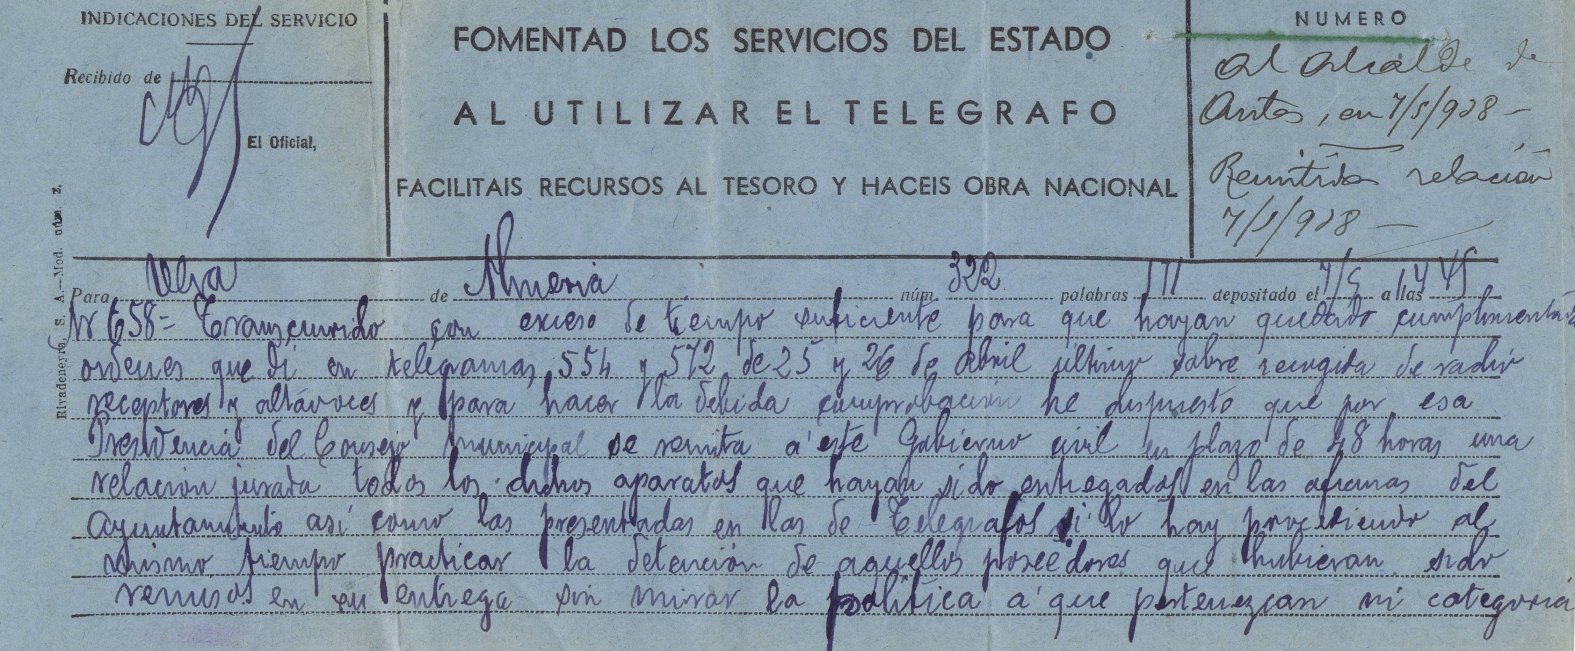 INDICACIONES DEL SERVICIO
Recibido de
El Oficial,
FOMENTAD LOS SERVICIOS DEL ESTADO
AL UTILIZAR EL TELEGRAFO
FACILITAIS RECURSOS AL TESORO Y HACEIS OBRA NACIONAL
NUMERO
al Alcalde de
Antas, en 7/5/938 -
Remitida relación
7/5/938 -
Rivadeneyra, S. A.—Mod. núm. 2.
Para Vera de Almeria núm. 322 palabras 171 depositado el 7/5 a las 14 45
Nr 658 = Transcurrido con exceso de tiempo suficiente para que hayan quedado
ordenes que di en telegramas 554 y 572 de 25 y 26 de abril ultimo sobre recogida de radio
receptores y altavoces y para hacer la debida comprobación he dispuesto que por esa
Presidencia del Consejo municipal se remita a este Gobierno civil en plazo de 48 horas una
relacion jurada todos los dichos aparatos que hayan sido entregados en las oficinas del
Ayuntamiento asi como las presentadas en las de Telegrafos si lo hay procediendo al
mismo tiempo practicar la detención de aquellos poseedores que hubieran sido
remisos en su entrega sin mirar la politica a que pertenezcan ni categoria